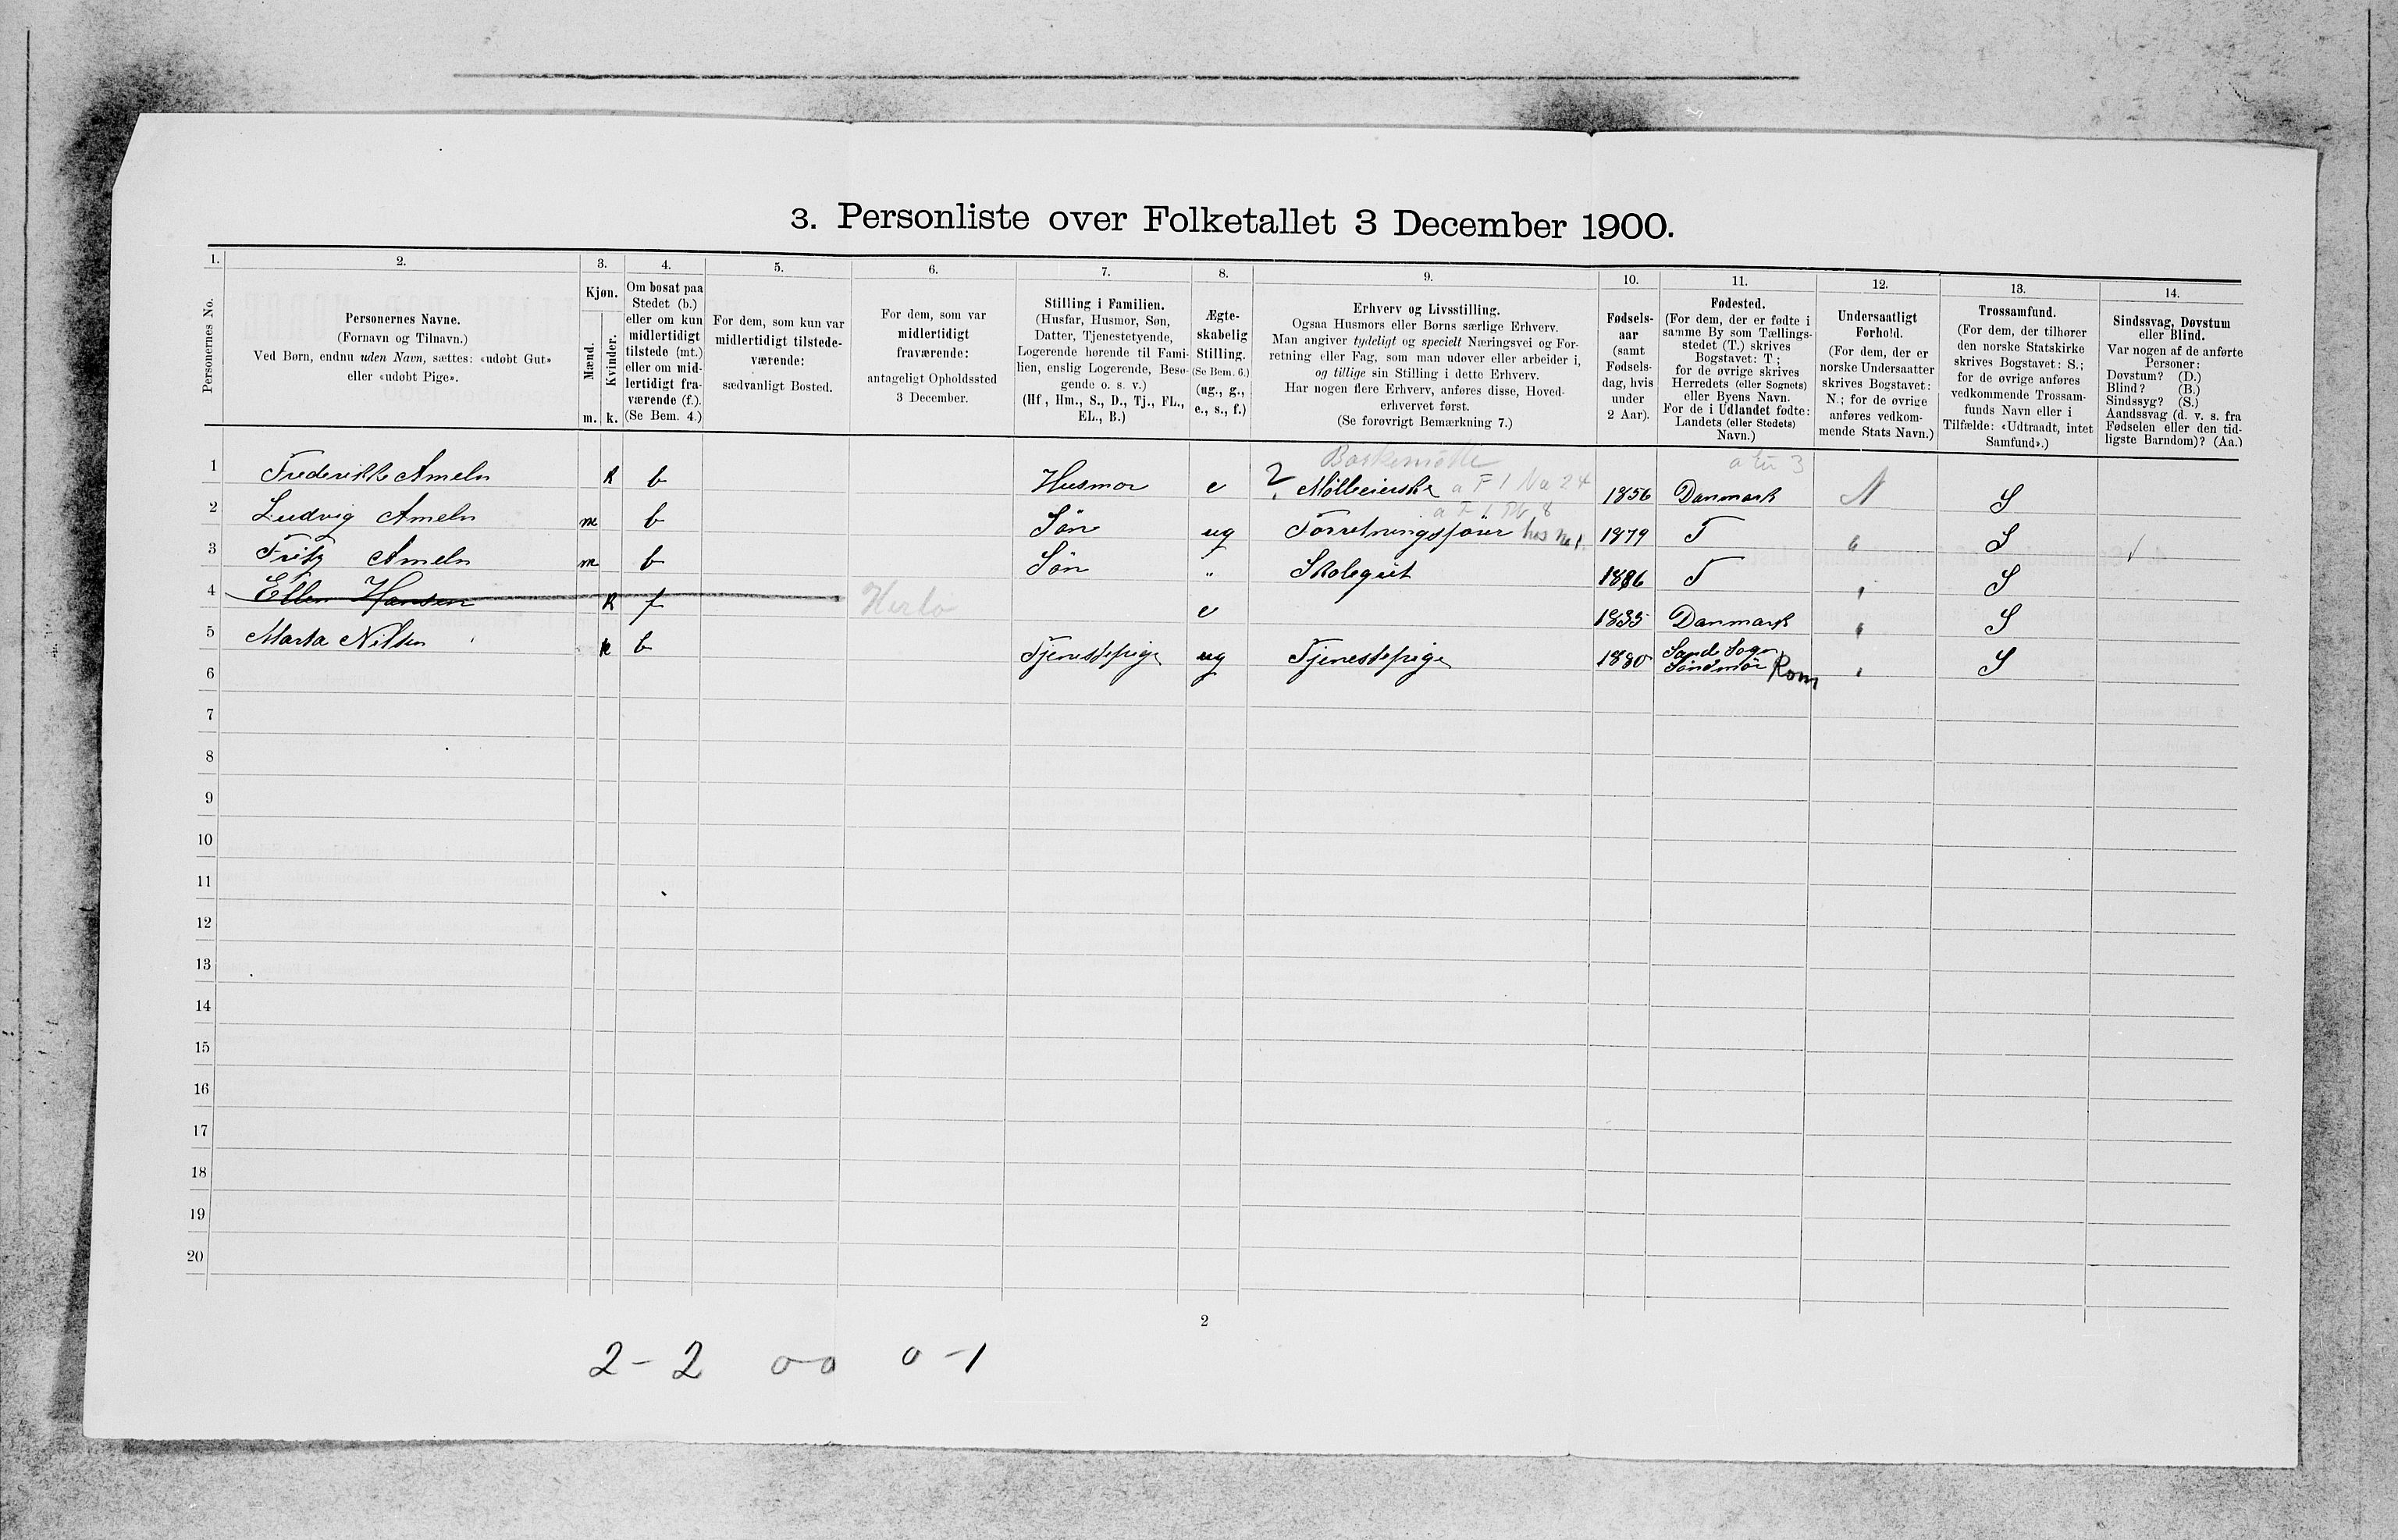 3. Personliste over Folketallet 3 December 1900.
1. 2. 3. 4. 5. 6. 7. 8. 9. 10. 11. 12. 13. 14.
Personernes No.
Personernes Navne.
(Fornavn og Tilnavn.)
Ved Børn, endnu uden Navn, sættes: «udøbt Gut»
eller «udøbt Pige».
Kjøn.
Mænd.
m.
Kvinder.
k.
Om bosat paa
Stedet (b.)
eller om kun
midlertidigt
tilstede (mt.)
eller om mid-
lertidigt fra-
værende (f.).
(Se Bem. 4.)
For dem, som kun var
midlertidigt tilstede-
værende:
sædvanligt Bosted.
For dem, som var
midlertidigt
fraværende:
antageligt Opholdssted
3 December.
Stilling i Familien.
(Husfar, Husmor, Søn,
Datter, Tjenestetyende,
Logerende hørende til Fami-
lien, enslig Logerende, Besø-
gende o. s. v.)
(Hf, Hm., S., D., Tj., FL.,
EL., B.)
Ægte-
skabelig
Stilling.
(Se Bem. 6.)
(ug., g.,
e., s., f.)
Erhverv og Livsstilling.
Ogsaa Husmors eller Børns særlige Erhverv.
Man angiver tydeligt og specielt Næringsvei og For-
retning eller Fag, som man udøver eller arbeider i,
og tillige sin Stilling i dette Erhverv.
Har nogen flere Erhverv, anføres disse, Hoved-
erhvervet først.
(Se forøvrigt Bemærkning 7.)
Fødsels-
aar
(samt
Fødsels-
dag, hvis
under
2 Aar).
Fødested.
(For dem, der er fødte i
samme By som Tællings-
stedet (T.) skrives
Bogstavet: T;
for de øvrige skrives
Herredets (eller Sognets)
eller Byens Navn.
For de i Udlandet fødte:
Landets (eller Stedets)
Navn.)
Undersaatligt
Forhold.
(For dem, der er
norske Undersaatter
skrives Bogstavet:
N.; for de øvrige
anføres vedkom-
mende Stats Navn.)
Trossamfund.
(For dem, der tilhører
den norske Statskirke
skrives Bogstavet: S.;
for de øvrige anføres
vedkommende Trossam-
funds Navn eller i
Tilfælde: «Udtraadt, intet
Samfund».)
Sindssvag, Døvstum
eller Blind.
Var nogen af de anførte
Personer:
Døvstum? (D.)
Blind? (B.)
Sindssyg? (S.)
Aandssvag (d. v. s. fra
Fødselen eller den tid-
ligste Barndom)? (Aa.)
1 Frederikke Ameln k b Husmor e Mølleeierske 1856 Danmark N S
2 Ludvig Ameln m b Søn ug Forretningsfører hos No 1. 1879 T " S
3 Fritz Ameln m b Søn " Skolegut 1886 T " S
4 Ellen Hansen k f Herlø e 1835 Danmark " S
5 Marta Nilsen k b Tjenestepige ug Tjenestepige 1880 Sand Sogn " S
Søndmør Rom
6
7
8
9
10
11
12
13
14
15
16
17
18
19
20
2
2 - 2 0-0 0-1